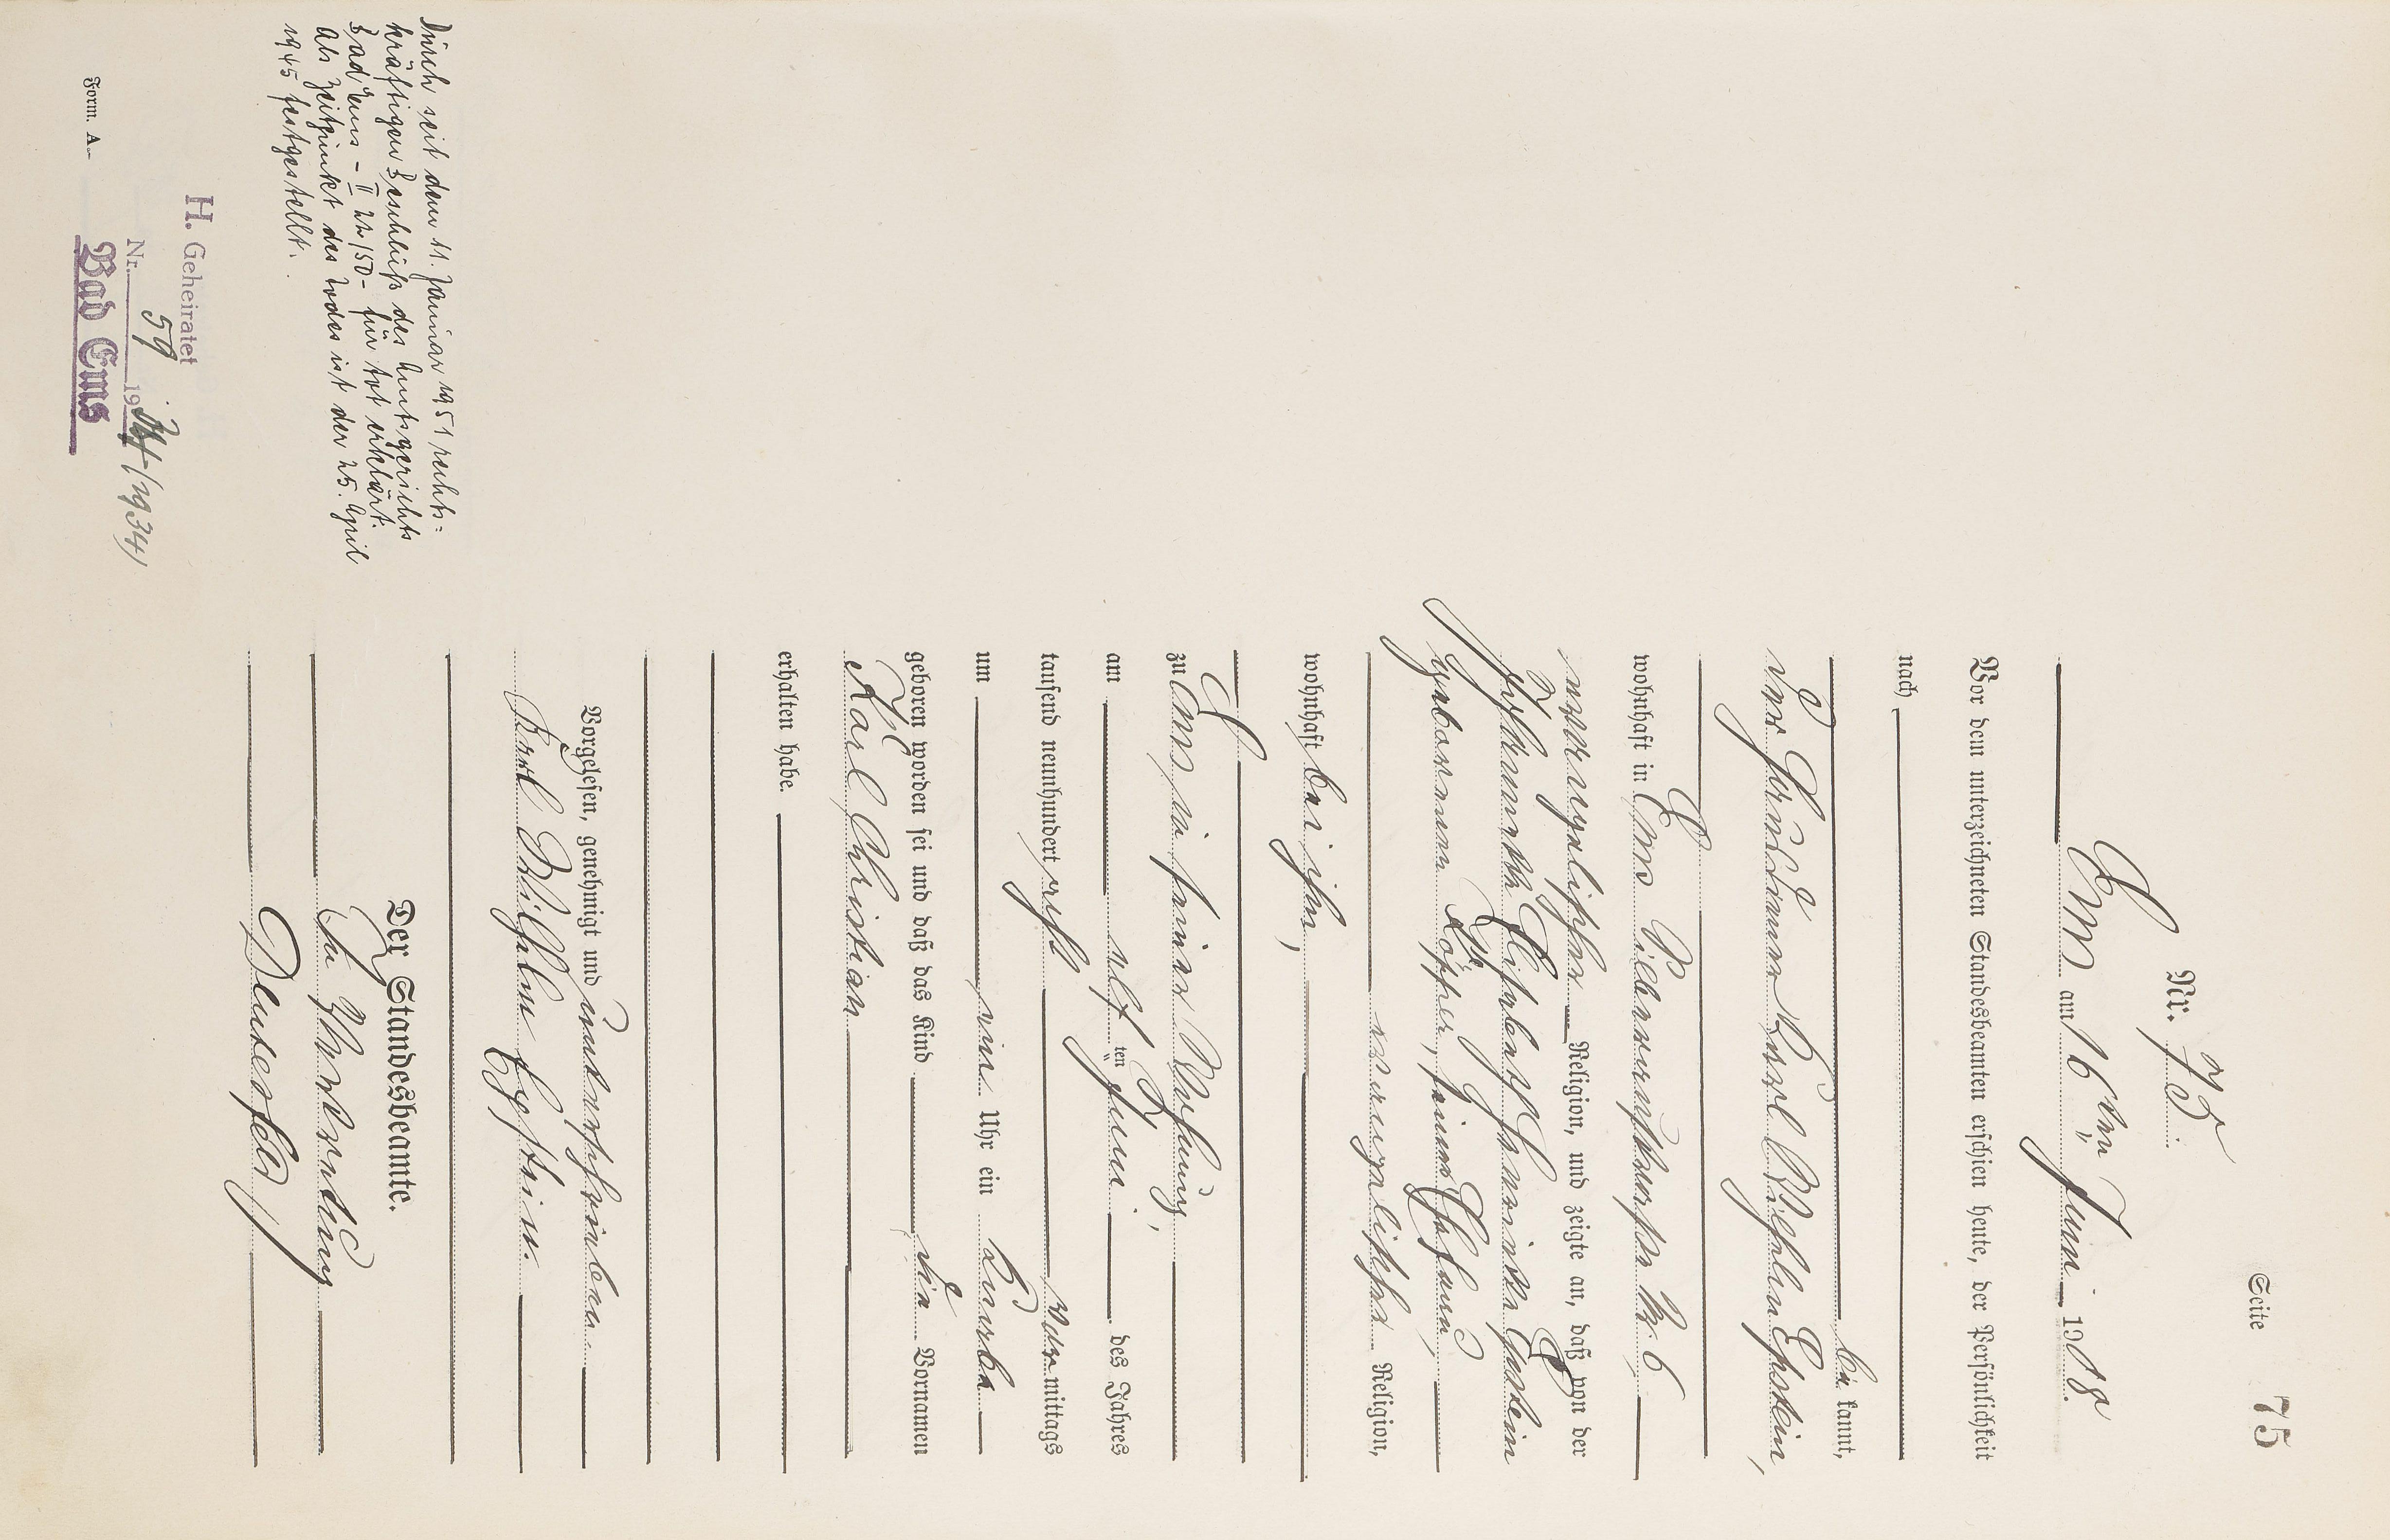 Seite 75
Nr. 75.
Ems am 16ten Juni 1908.
Vor dem unterzeichneten Standesbeamten erschien heute, der Persönlichkeit
nach
be kannt,
der Karl Wilhelm Epstein,
wohnhaft in Ems Silberaustraße Nr. 6
evangelischer Religion, und zeigte an, daß von der
Elisabeth Henriette Epstein
geborenen Köpper, seiner Ehefrau,
evangelischer Religion,
wohnhaft bei ihm,
zu Ems in seiner Wohnung,
am elf ten Juni des Jahres
tausend neunhundert acht vor mittags
um ein Uhr ein Knabe
geboren worden sei und daß das Kind die Vornamen
Karl Christian
erhalten habe.
Vorgelesen, genehmigt und unterschrieben.
Karl Wilhelm Epstein.
Der Standesbeamte.
In Vertretung
Deusesfeld
Durch seit dem 11. Januar 1951 rechts=
kräftigen Beschluß des Amtsgerichts
Bad Ems - II 22/50 - für tot erklärt.
Als Zeitpunkt des Todes ist der 25. April
1945 festgestellt.
H. Geheiratet
Nr. 59 19 34/1934/
Bad Ems
Form. A.